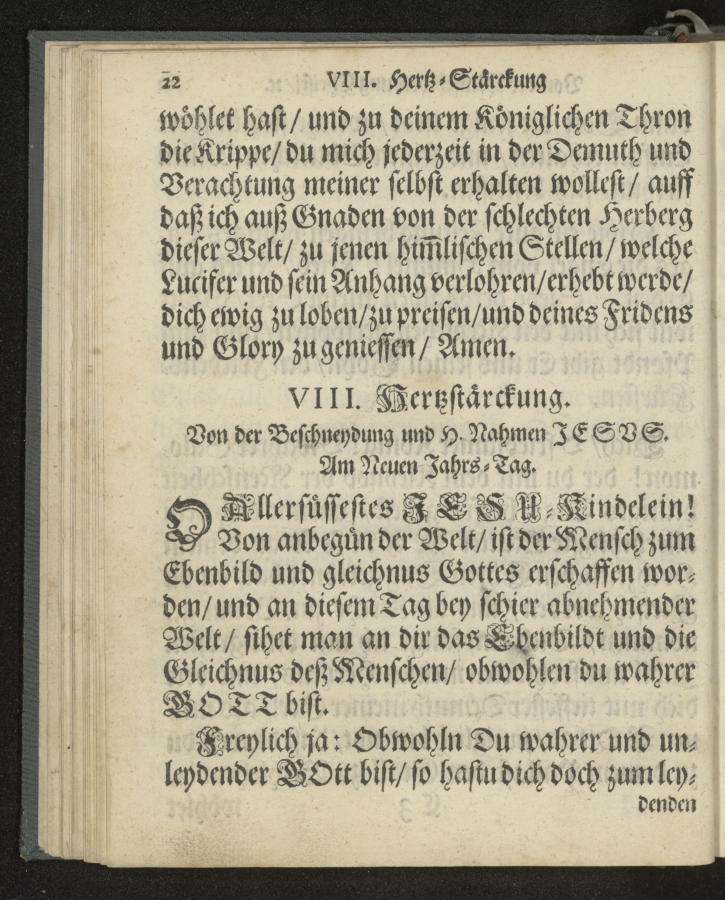 22 VIII. Hertz-Stärckung
wöhlet hast/ und zu deinem Königlichen Thron
die Krippe/ du mich jederzeit in der Demuth und
Verachtung meiner selbst erhalten wollest/ auff
daß ich auß Gnaden von der schlechten Herberg
dieser Welt/ zu jenen him̅lischen Stellen/ welche
Lucifer und sein Anhang verlohren/ erhebt werde/
dich ewig zu loben/ zu preisen/ und deines Fridens
und Glory zu geniessen/ Amen.
VIII. Hertzstärckung.
Von der Beschneydung und H. Nahmen JESVS.
Am Neuen Jahrs-Tag.
O Allersüssestes JESU-Kindelein!
Von anbegün der Welt/ ist der Mensch zum
Ebenbild und gleichnus Gottes erschaffen wor-
den/ und an diesem Tag bey schier abnehmender
Welt/ sihet man an dir das Ebenbildt und die
Gleichnus deß Menschen/ obwohlen du wahrer
GOTT bist.
Freylich ja: Obwohln Du wahrer und un-
leydender GOtt bist/ so hastu dich doch zum ley-
denden